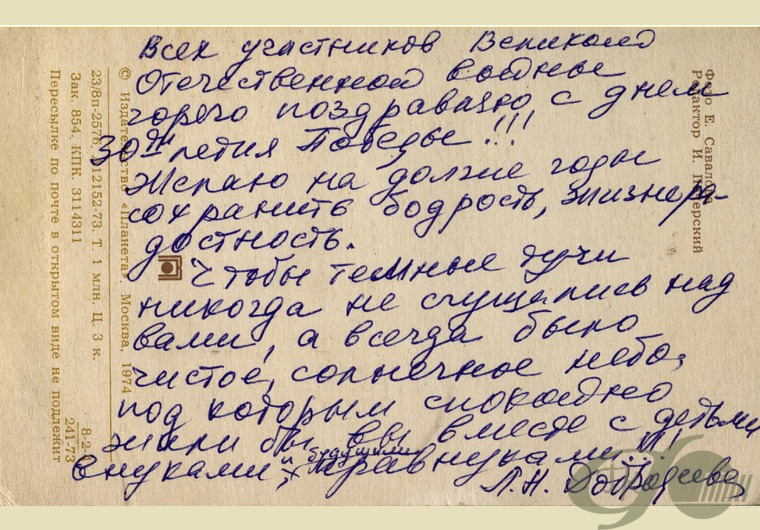 Всех участников Великой
Отечественной войны
горячо поздравляю с днем
30ти летия Победы!!!
Желаю на долгие годы
сохранить бодрость, жизнера-
достность.
Чтобы темные тучи
никогда не сгущались над
вами, а всегда было
чистое, солнечное небо,
под которым спокойно
жили бы вы вместе с детьми
внуками и будущими правнуками...!!!
Л.Н.
Фото Е. Савалова
Редактор И.
© Издательство «Планета». Москва, 1974
23/8п-2576. 012152-73. Т. 1 млн. Ц. 3 к.
Зак. 854. КПК. 3114311
Пересылке по почте в открытом виде не подлежит
8-2-
241-73